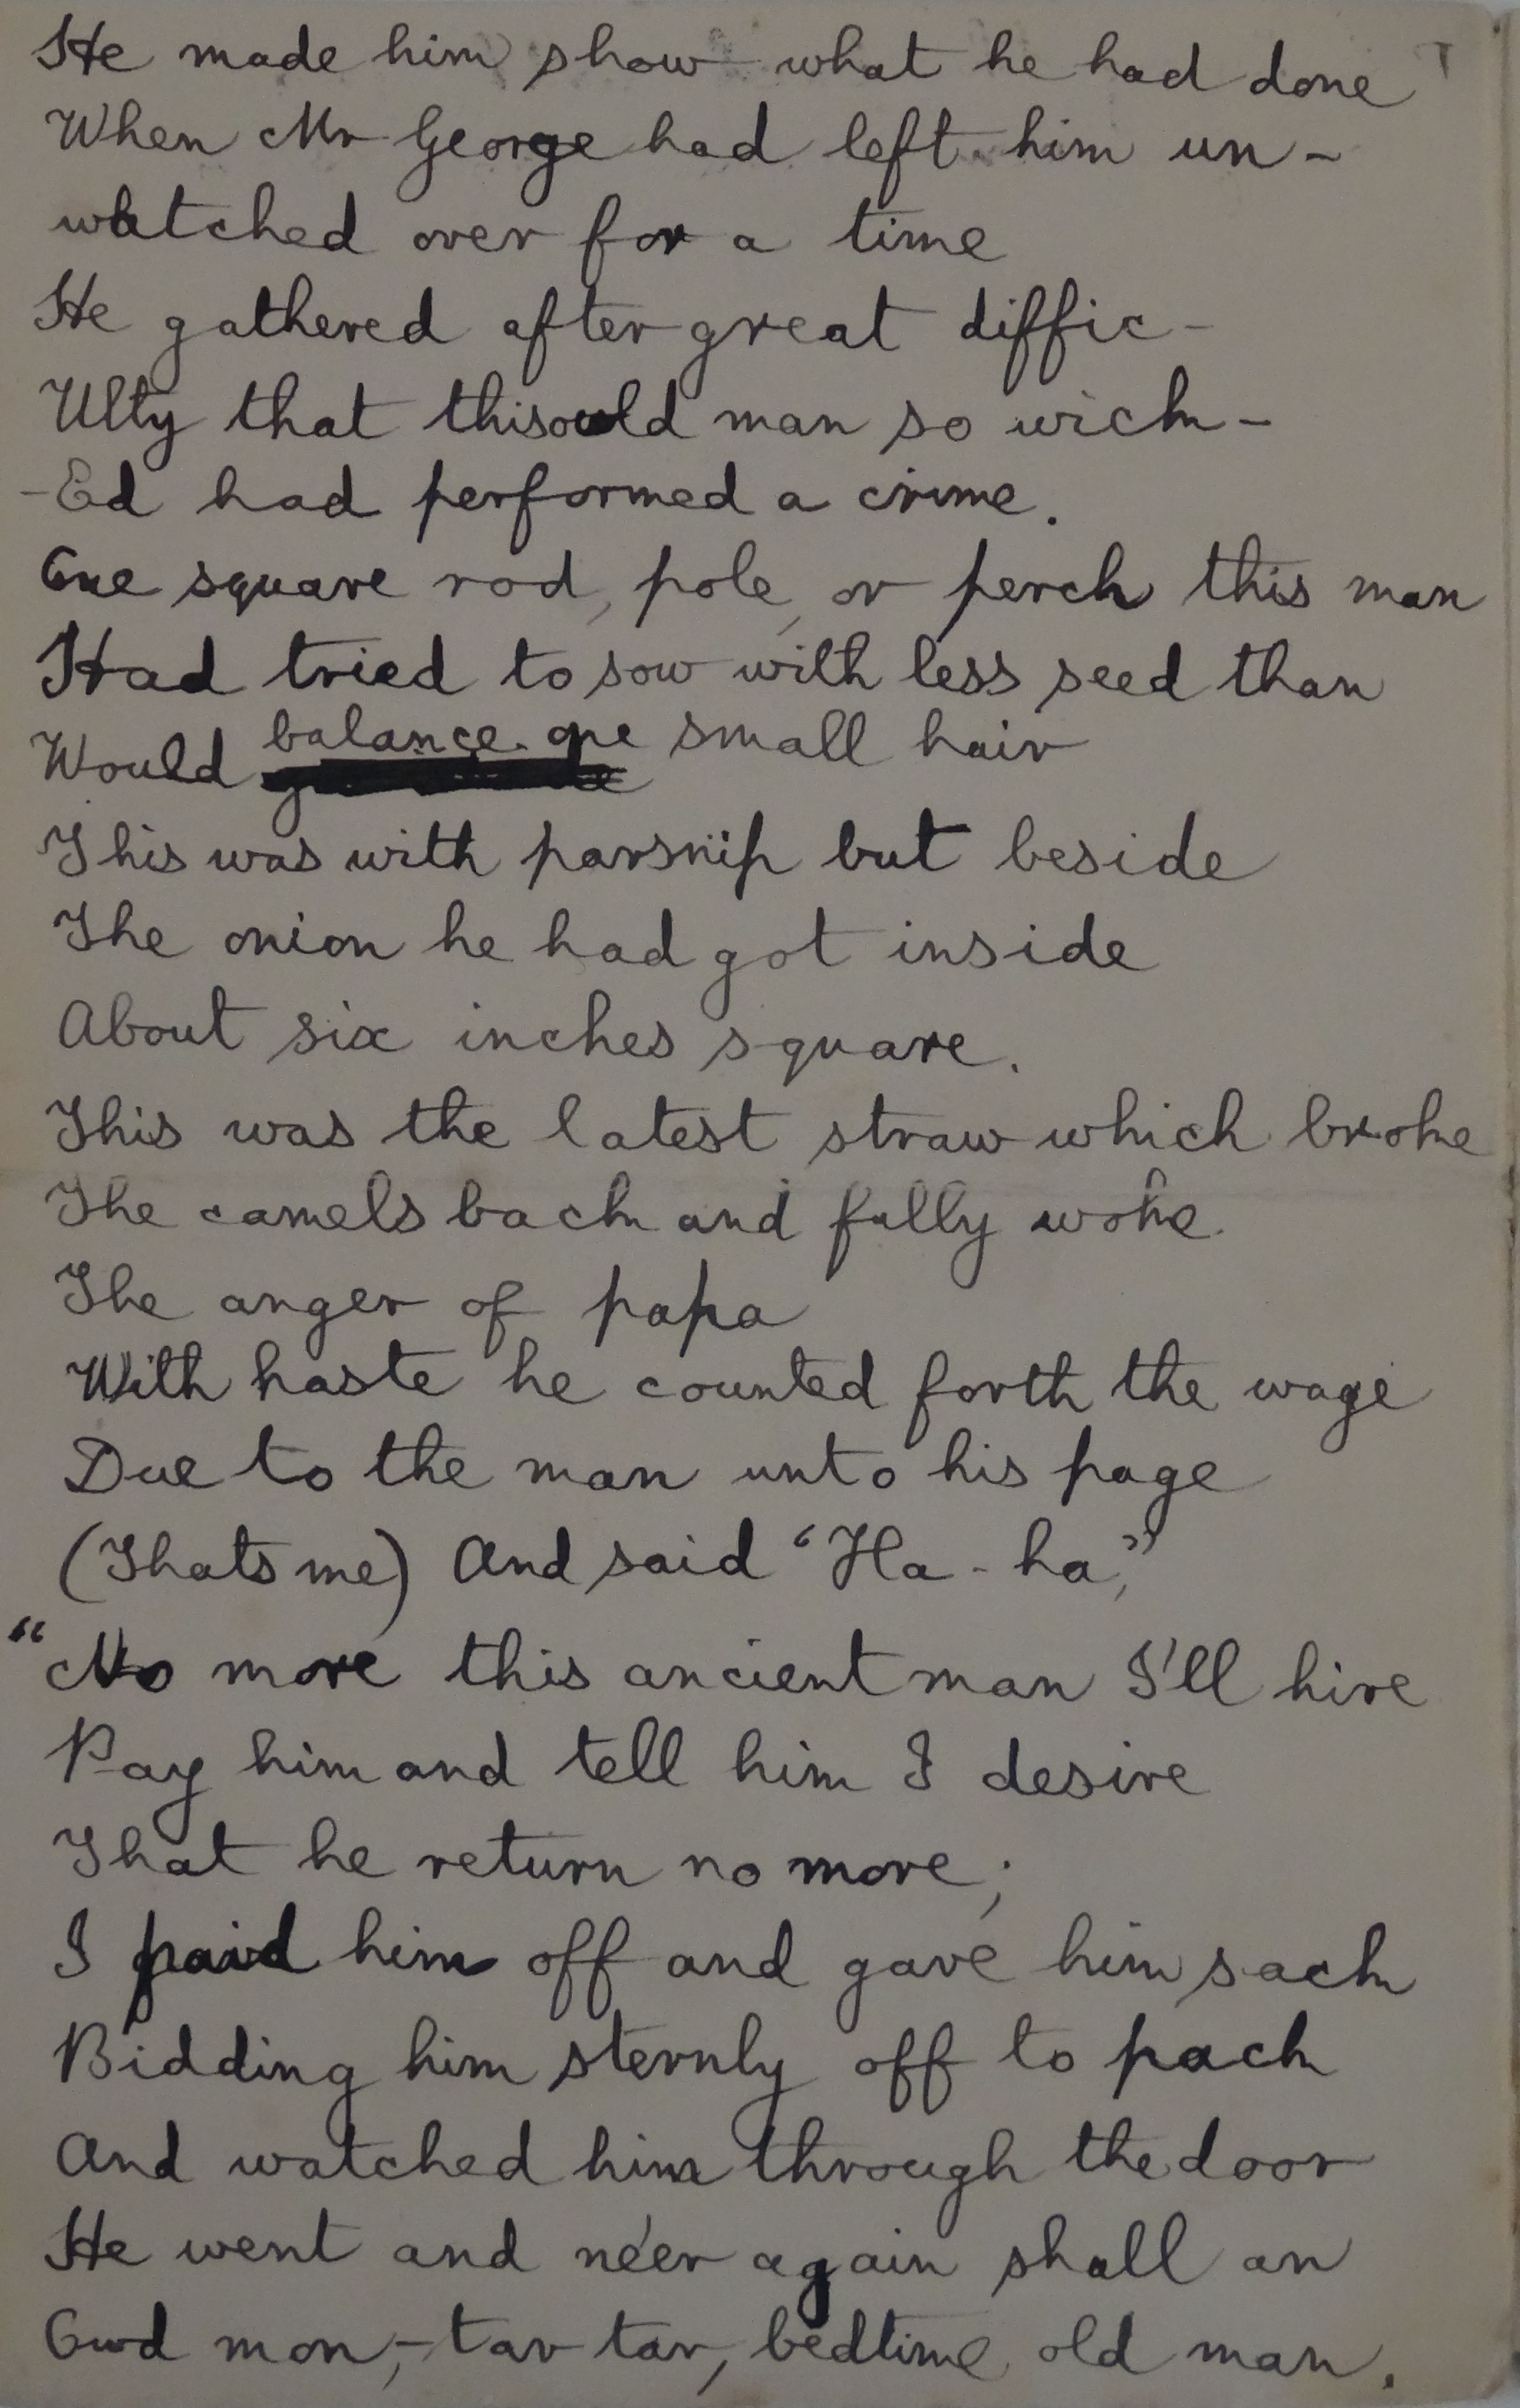 He made him show what he had done
When Mr George had left him un-
watched over for a time
He gathered after great diffic-
Ulty that thisowld man so wick-
-Ed had performed a crime.
One square rod, pole, or perch this man
Had tried to sow with less seed than
Would balance one small hair
This was with parsnip but beside
The onion he had got inside
About six inches square.
This was the latest straw which broke
The camels back and fully woke
The anger of papa
With haste he counted forth the wage
Due to the man unto his page
(Thats me) And said "Ha-ha,"
"No more this ancient man I'll hire
Pay him and tell him I desire
That he return no more;
I paid him off and gave him sack
Bidding him sternly off to pack
And watched him through the door
He went and ne'er again shall an
Owd mon,-tar tar, bedtime old man.